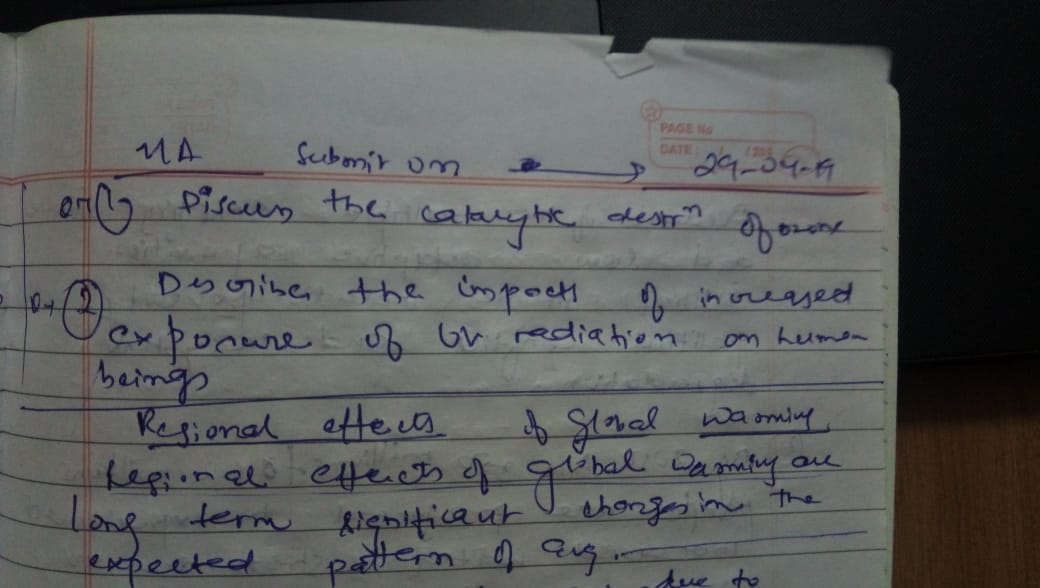 PAGE No
DATE:
HA Submit on → 29-04-19
Q→ 1) Discuss the catalytic destrⁿ of ozone
Q→ 2 Describe the impacts of increased
exposure of UV radiation on human
beings
Regional effects of Global Warming
Regional effects of global warming are
Long term significant changes in the
expected pattern of avg.
due to